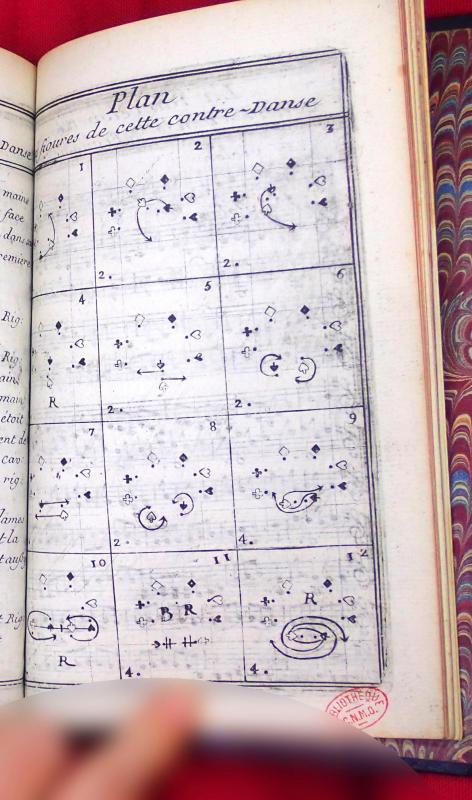 Plan
figures de cette contre~Danse
1
2
3
2.
2.
4
5
6
R
2.
2.
7
8
9
2.
4.
10
11
12
B R
R
R
4.
4.
Danse
mains
face
dans
Rig:
Rig
main
étoit
ent de
cav
rig:
Dames
t la
t aussy
t Rig
BLIOTHÈQUE
C.N.M.D.